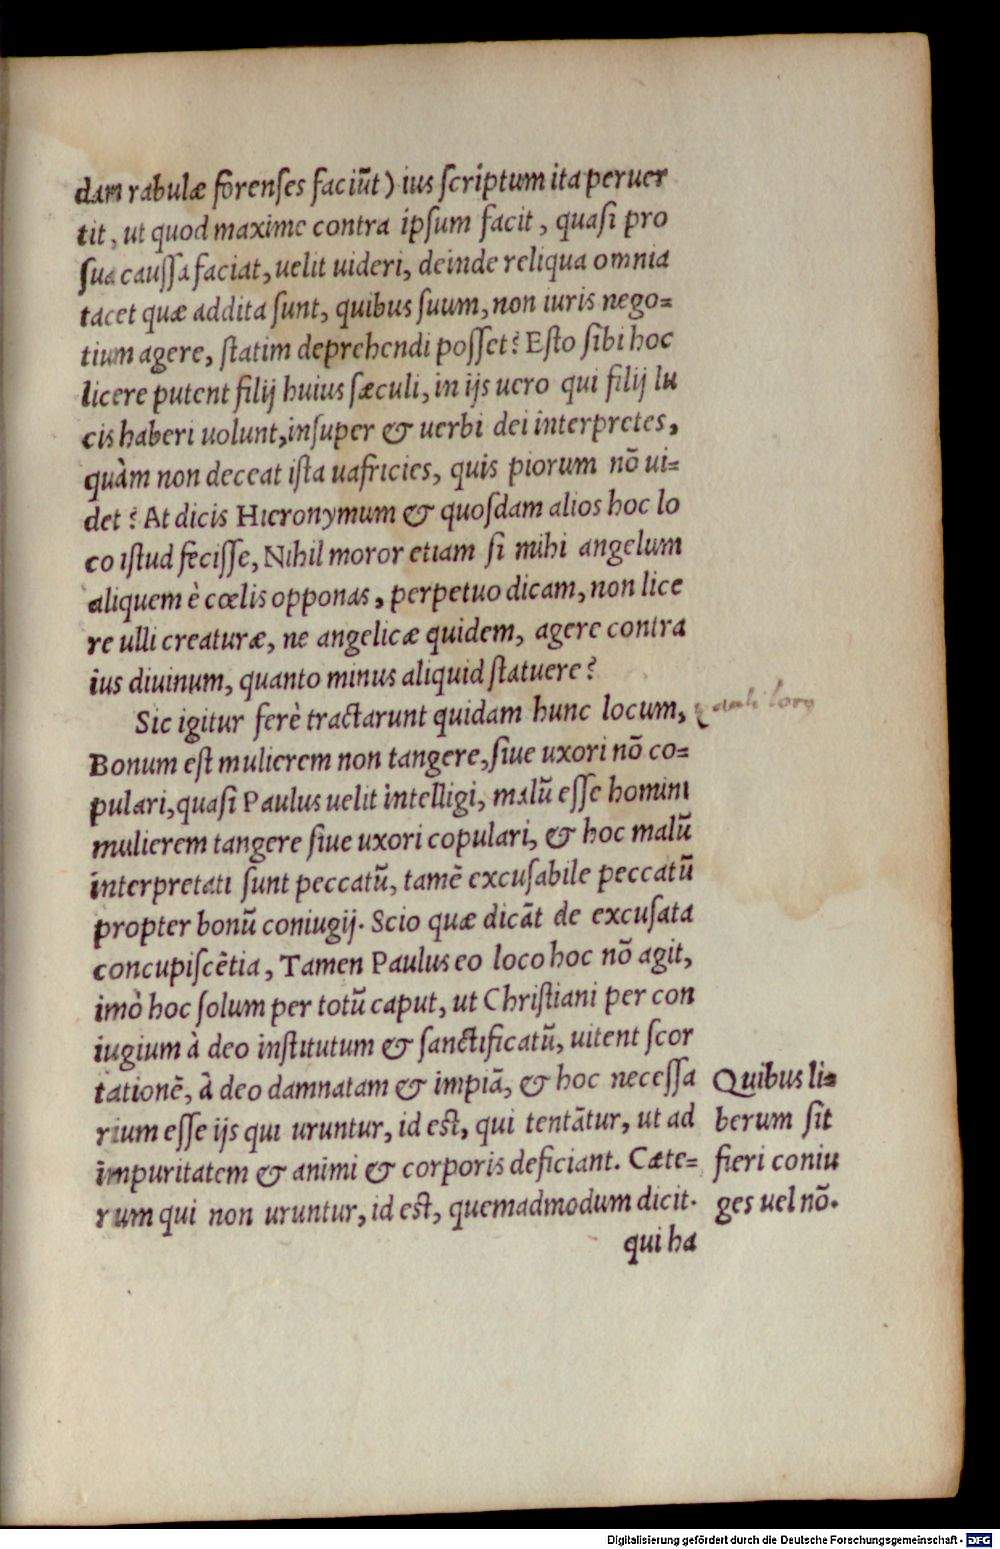 dam rabulæ forenses faciũt) ius scriptum ita peruer
tit, ut quod maxime contra ipsum facit, quasi pro
sua caussa faciat, uelit uideri, deinde reliqua omnia
tacet quæ addita sunt, quibus suum, non iuris nego=
tium agere, statim deprehendi posset? Esto sibi hoc
licere putent filij huius sæculi, in ijs uero qui filij lu
cis haberi uolunt, insuper & uerbi dei interpretes,
quàm non deceat ista uafricies, quis piorum nõ ui=
det? At dicis Hieronymum & quosdam alios hoc lo
co istud fecisse, Nihil moror etiam si mihi angelum
aliquem è cœlis opponas, perpetuo dicam, non lice
re ulli creaturæ, ne angelicæ quidem, agere contra
ius diuinum, quanto minus aliquid statuere?
Sic igitur ferè tractarunt quidam hunc locum,
Bonum est mulierem non tangere, siue uxori nõ co=
pulari, quasi Paulus uelit intelligi, malũ esse homini
mulierem tangere siue uxori copulari, & hoc malũ
interpretati sunt peccatũ, tamẽ excusabile peccatũ
propter bonũ coniugij. Scio quæ dicãt de excusata
concupiscẽtia, Tamen Paulus eo loco hoc nõ agit,
imò hoc solum per totũ caput, ut Christiani per con
iugium à deo institutum & sanctificatũ, uitent scor
tationẽ, à deo damnatam & impiã, & hoc necessa
rium esse ijs qui uruntur, id est, qui tentãtur, ut ad
impuritatem & animi & corporis deficiant. Cæte=
rum qui non uruntur, id est, quemadmodum dicit.
qui ha
Quibus li=
berum sit
fieri coniu
ges uel nõ.
Digitalisierung gefördert durch die Deutsche Forschungsgemeinschaft - DFG